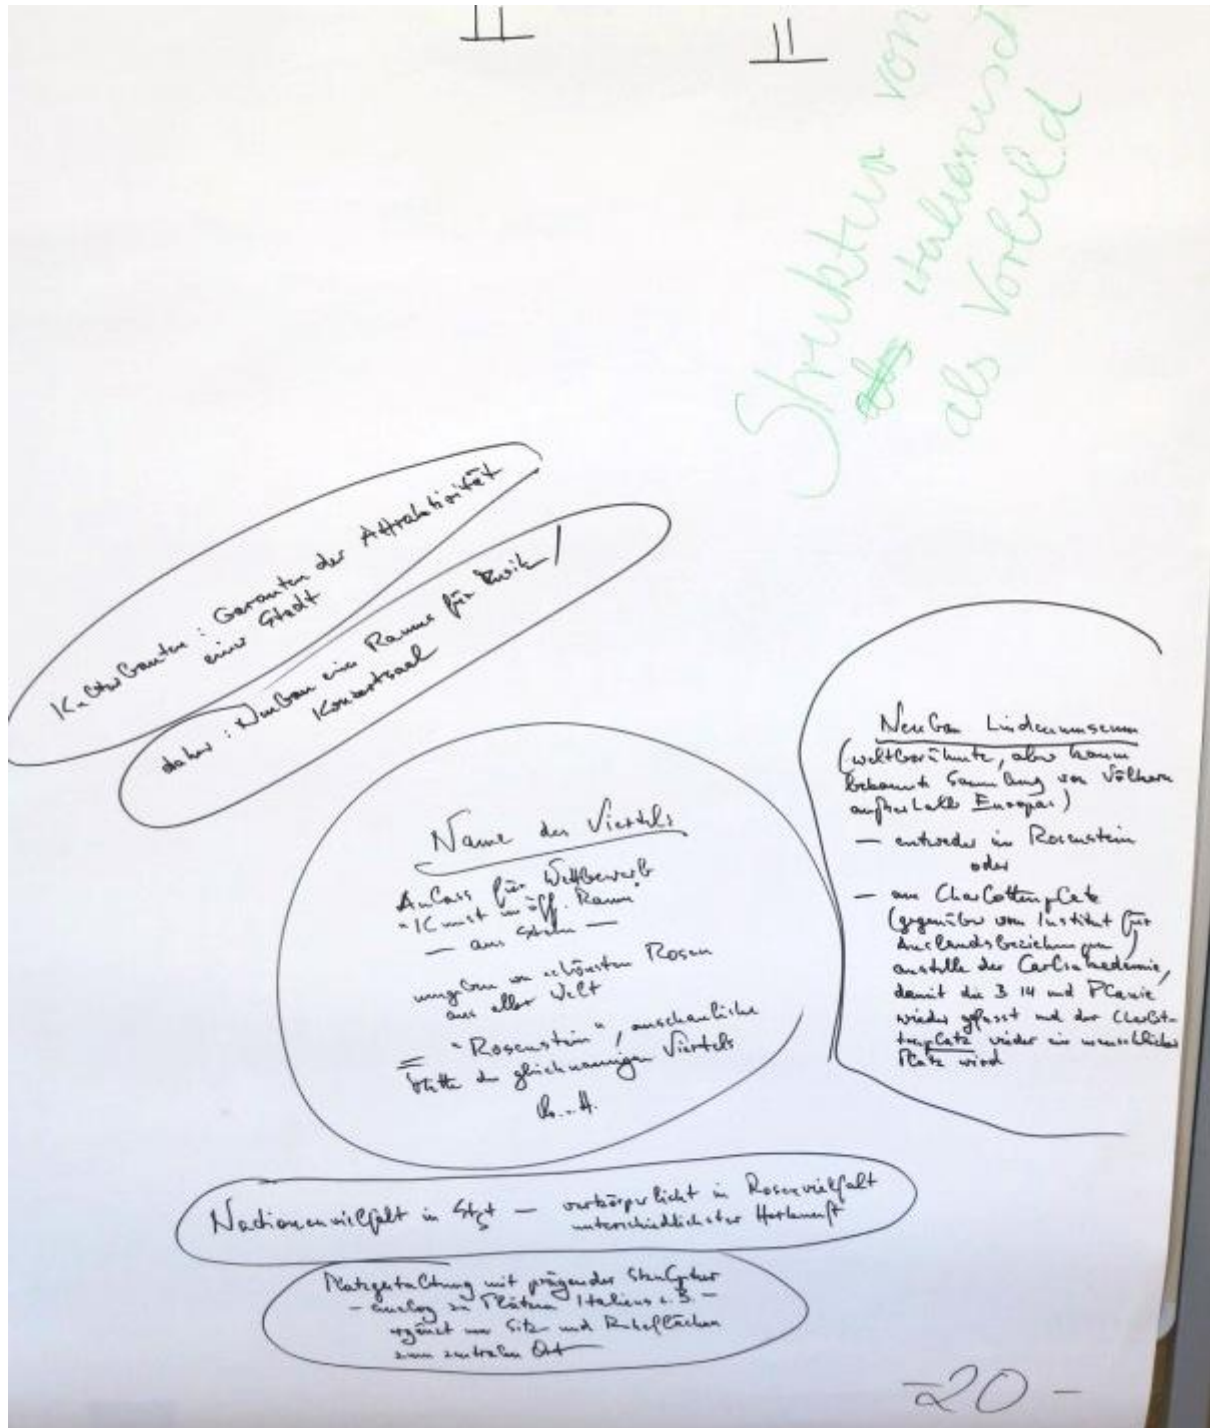 Struktur von
italienisch
als Vorbild
Kulturbauten: Garanten der Attraktivität
einer Stadt
daher: Neubau eines Raums für Musik /
Konzertsaal
Name des Viertels
Anlass für Wettbewerb
"Kunst im öff. Raum"
— aus Stein —
umgeben von schönsten Rosen
aus aller Welt
= "Rosenstein", anschauliche
Mitte des gleichnamigen Viertels
Neubau Lindenmuseum
(weltberühmte, aber kaum
bekannte Sammlung von Völkern
außerhalb Europas)
— entweder im Rosenstein
oder
— am Charlottenplatz
(gegenüber vom Institut für
Auslandsbeziehungen)
anstelle der Carlsakademie,
damit die B 14 und Planie
wieder gefasst und der Charlot-
tenplatz wieder ein menschlicher
Platz wird
Nationenvielfalt in Stgt — verkörperlicht in Rosenvielfalt
unterschiedlichster Herkunft
Platzgestaltung mit prägender Skulptur
— analog zu Plätzen Italiens z.B. —
ergänzt um Sitz und Ruheflächen
zum zentralen Ort
-20-